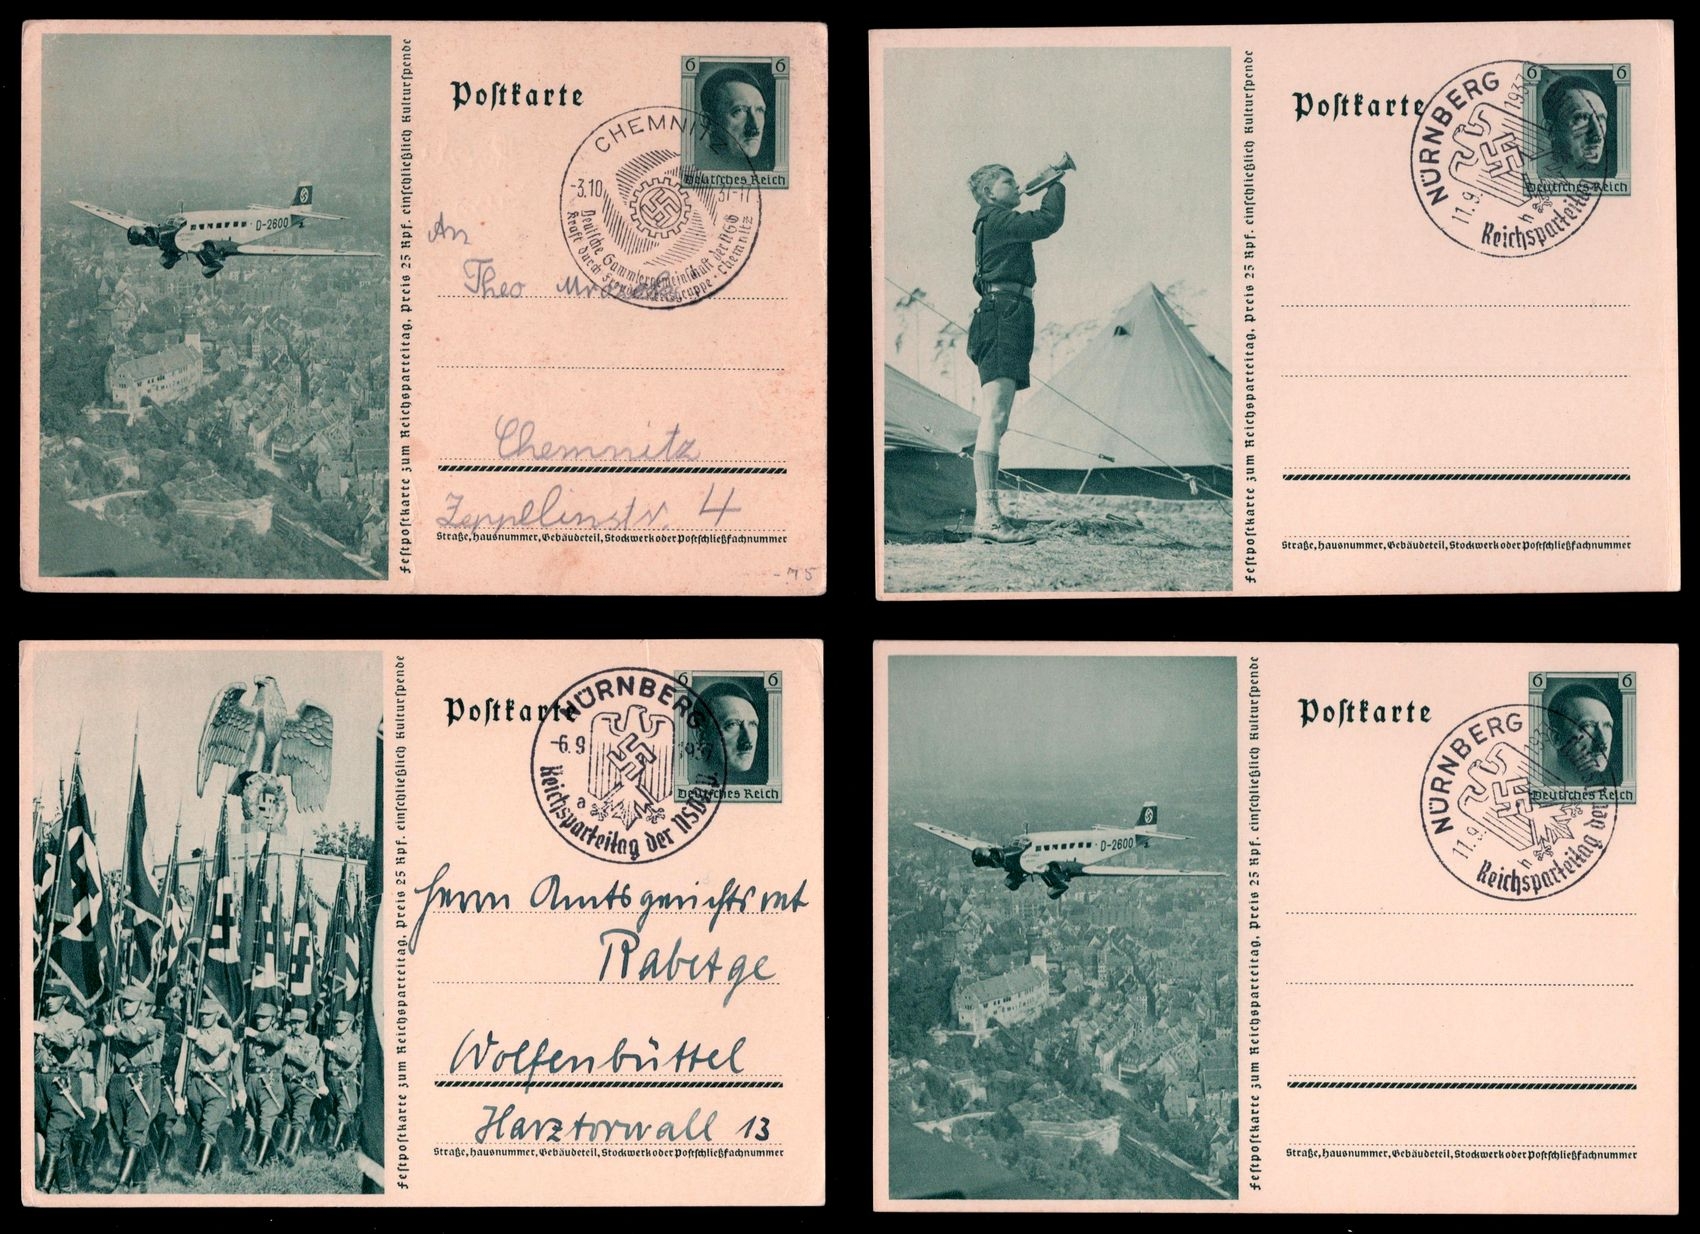 Festpostkarte zum Reichsparteitag, Preis 25 Rpf. einschließlich Kulturspende
Postkarte
6 6
Deutsches Reich
CHEMNITZ
-3.10 37-17
Deutsche Sammlergemeinschaft der NSG
Kraft durch Freude Kreisgruppe · Chemnitz
D-2600
An
Theo
Chemnitz
Zeppelinstr. 4
Straße, Hausnummer, Gebäudeteil, Stockwerk oder Postschließfachnummer
-75
Festpostkarte zum Reichsparteitag, Preis 25 Rpf. einschließlich Kulturspende
Postkarte
6 6
Deutsches Reich
NÜRNBERG
11.9. 1937
h
Reichsparteitag
Straße, Hausnummer, Gebäudeteil, Stockwerk oder Postschließfachnummer
Festpostkarte zum Reichsparteitag, Preis 25 Rpf. einschließlich Kulturspende
Postkarte
6 6
Deutsches Reich
NÜRNBERG
-6.9 1937
a
Reichsparteitag der NSDAP
Herrn Amtsgerichtsrat
Rabetge
Wolfenbüttel
Harztorwall 13
Straße, Hausnummer, Gebäudeteil, Stockwerk oder Postschließfachnummer
Festpostkarte zum Reichsparteitag, Preis 25 Rpf. einschließlich Kulturspende
Postkarte
6 6
Deutsches Reich
NÜRNBERG
11.9. 1937
h
Reichsparteitag der
D-2600
Straße, Hausnummer, Gebäudeteil, Stockwerk oder Postschließfachnummer